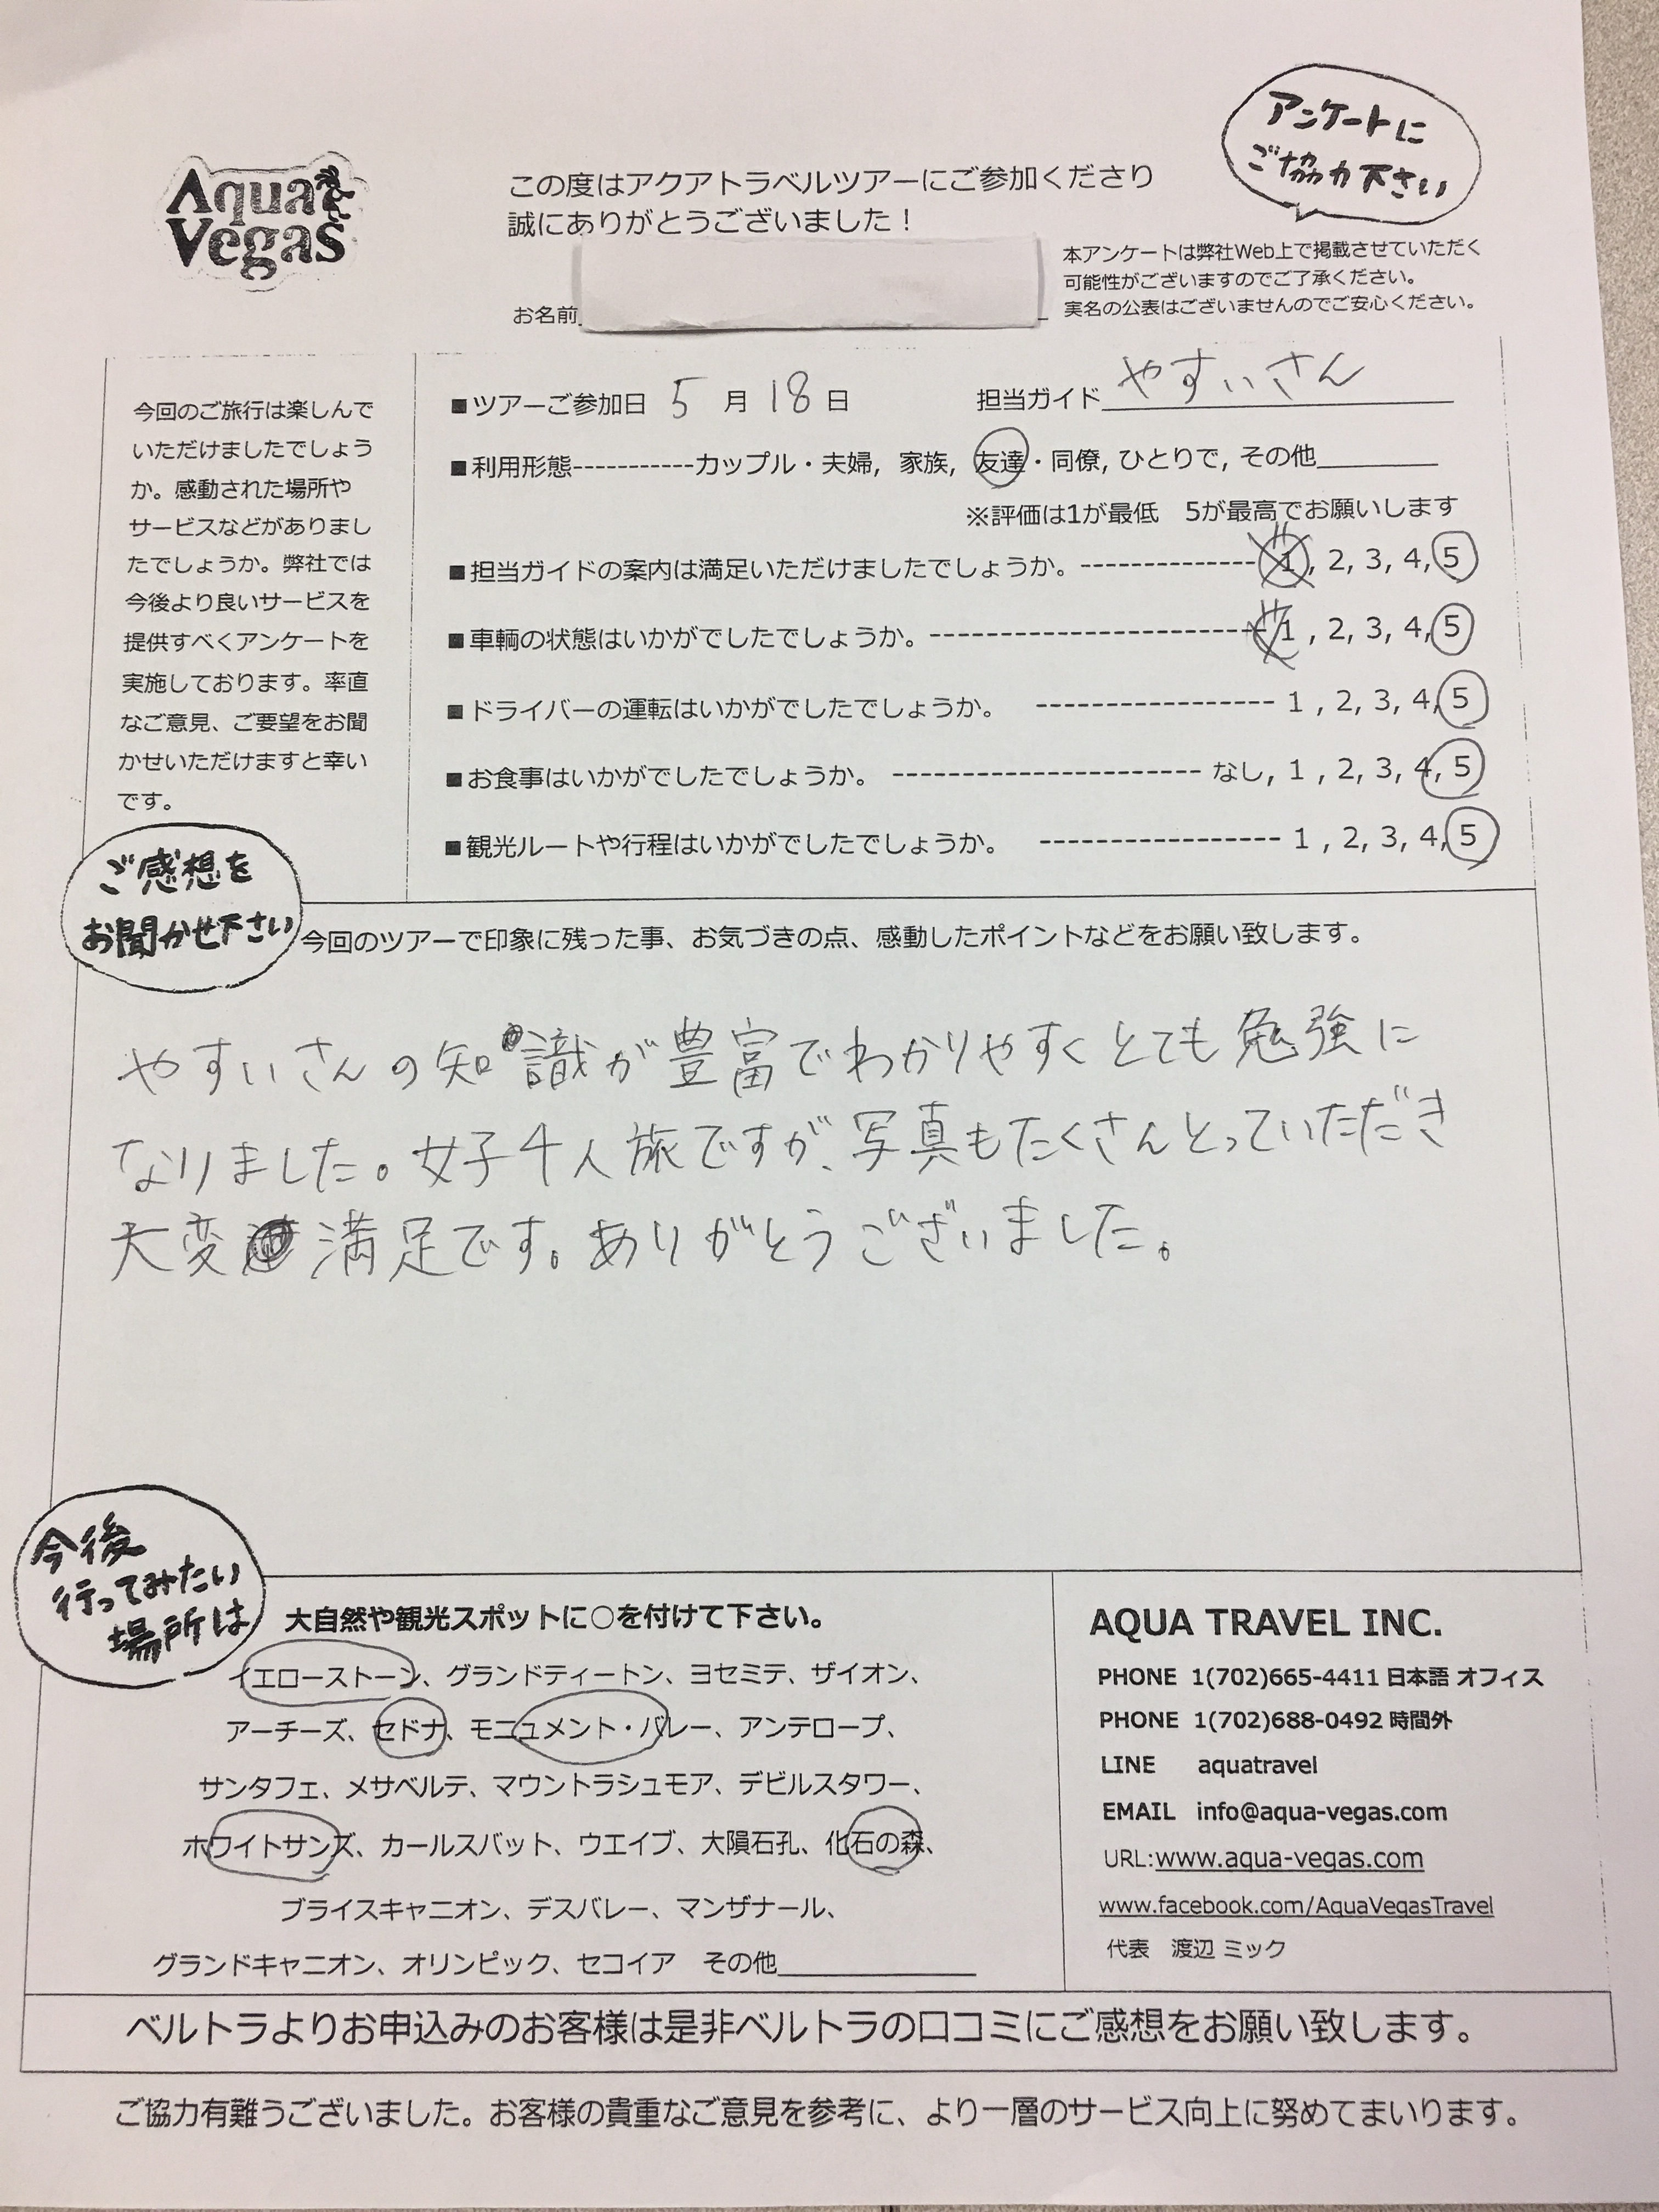 Aqua
Vegas
この度はアクアトラベルツアーにご参加くださり
誠にありがとうございました！
アンケートに
ご協力下さい
本アンケートは弊社Web上で掲載させていただく
可能性がございますのでご了承ください。
実名の公表はございませんのでご安心ください。
お名前
今回のご旅行は楽しんで
いただけましたでしょう
か。感動された場所や
サービスなどがありまし
たでしょうか。弊社では
今後より良いサービスを
提供すべくアンケートを
実施しております。率直
なご意見、ご要望をお聞
かせいただけますと幸い
です。
■ツアーご参加日 5 月 18 日 担当ガイド やすいさん
■利用形態-----------カップル・夫婦, 家族, 友達・同僚, ひとりで, その他
※評価は1が最低 5が最高でお願いします
■担当ガイドの案内は満足いただけましたでしょうか。--------------1, 2, 3, 4, 5
■車輌の状態はいかがでしたでしょうか。-------------------------1, 2, 3, 4, 5
■ドライバーの運転はいかがでしたでしょうか。 -----------------1, 2, 3, 4, 5
■お食事はいかがでしたでしょうか。 ----------------------なし, 1, 2, 3, 4, 5
■観光ルートや行程はいかがでしたでしょうか。 -----------------1, 2, 3, 4, 5
ご感想を
お聞かせ下さい
今回のツアーで印象に残った事、お気づきの点、感動したポイントなどをお願い致します。
やすいさんの知識が豊富でわかりやすくとても勉強に
なりました。女子4人旅ですが、写真もたくさんとっていただき
大変満足です。ありがとうございました。
今後
行ってみたい
場所は
大自然や観光スポットに○を付けて下さい。
イエローストーン、グランドティートン、ヨセミテ、ザイオン、
アーチーズ、セドナ、モニュメント・バレー、アンテロープ、
サンタフェ、メサベルテ、マウントラシュモア、デビルスタワー、
ホワイトサンズ、カールスバット、ウエイブ、大隕石孔、化石の森、
ブライスキャニオン、デスバレー、マンザナール、
グランドキャニオン、オリンピック、セコイア その他
AQUA TRAVEL INC.
PHONE 1(702)665-4411 日本語 オフィス
PHONE 1(702)688-0492 時間外
LINE aquatravel
EMAIL info@aqua-vegas.com
URL:www.aqua-vegas.com
www.facebook.com/AquaVegasTravel
代表 渡辺 ミック
ベルトラよりお申込みのお客様は是非ベルトラの口コミにご感想をお願い致します。
ご協力有難うございました。お客様の貴重なご意見を参考に、より一層のサービス向上に努めてまいります。